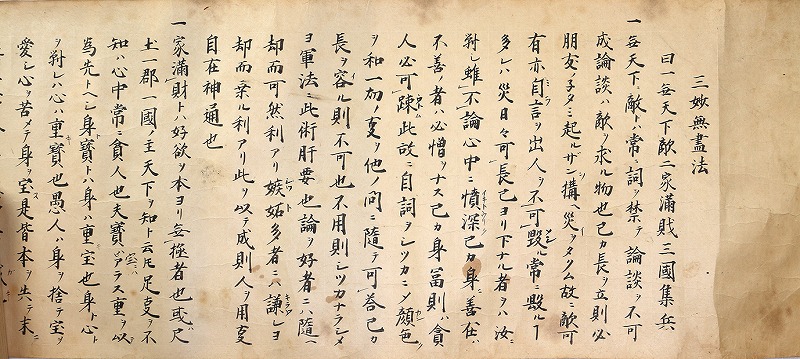 三妙無盡法
曰一毎天下敵二家滿賎三國集兵
一毎天下敵トハ常ニ詞ヲ禁テ論談ヲ不可
成論談ハ敵ヲ求ル物也己カ長ヲ立則必
朋友ノ子タミ起ルザン構ヘ災ヲタクム故ニ敵可
有亦自言ヲ出人ヲ不可毀ル常ニ毀ルー
多レハ災日々可長己ヨリ下ナル者ヲハ汝ニ
對シ雖不論心中ニ憤深己カ身ニ善在ハ
不善ノ者ハ必憎ヲナス己カ身冨則ハ貪
人必可踈此故ニ自詞ヲシツカニシ顔色
ヲ和一切ノ支ヲ他ノ問ニ隨テ可答己カ
長ヲ容ル則不可也不用則シツカナラシメ
ヨ軍法ニ此術肝要也論ヲ好者ニハ隨ヘ
却而可然利アリ嫉妬多者ニハ謙レヨ
却而棄ル利アリ此ヲ以テ成則人ヲ用支
自在神通也
一家滿財トハ好欲ヲ本ヨリ無極者也或尺
土一郡一國ノ主天下ヲ知ト云氏足支ヲ不
知ハ心中常ニ貪人也夫寶ハアラス重ヲ以
爲先トヘシ身寶トハ身ハ重宝也身ト心ト
ヲ對レハ心ハ重寶也愚人ハ身ヲ捨テ宝ヲ
愛シ心ヲ苦メテ身ヲ宝ス是皆本ヲ共テ末ニ